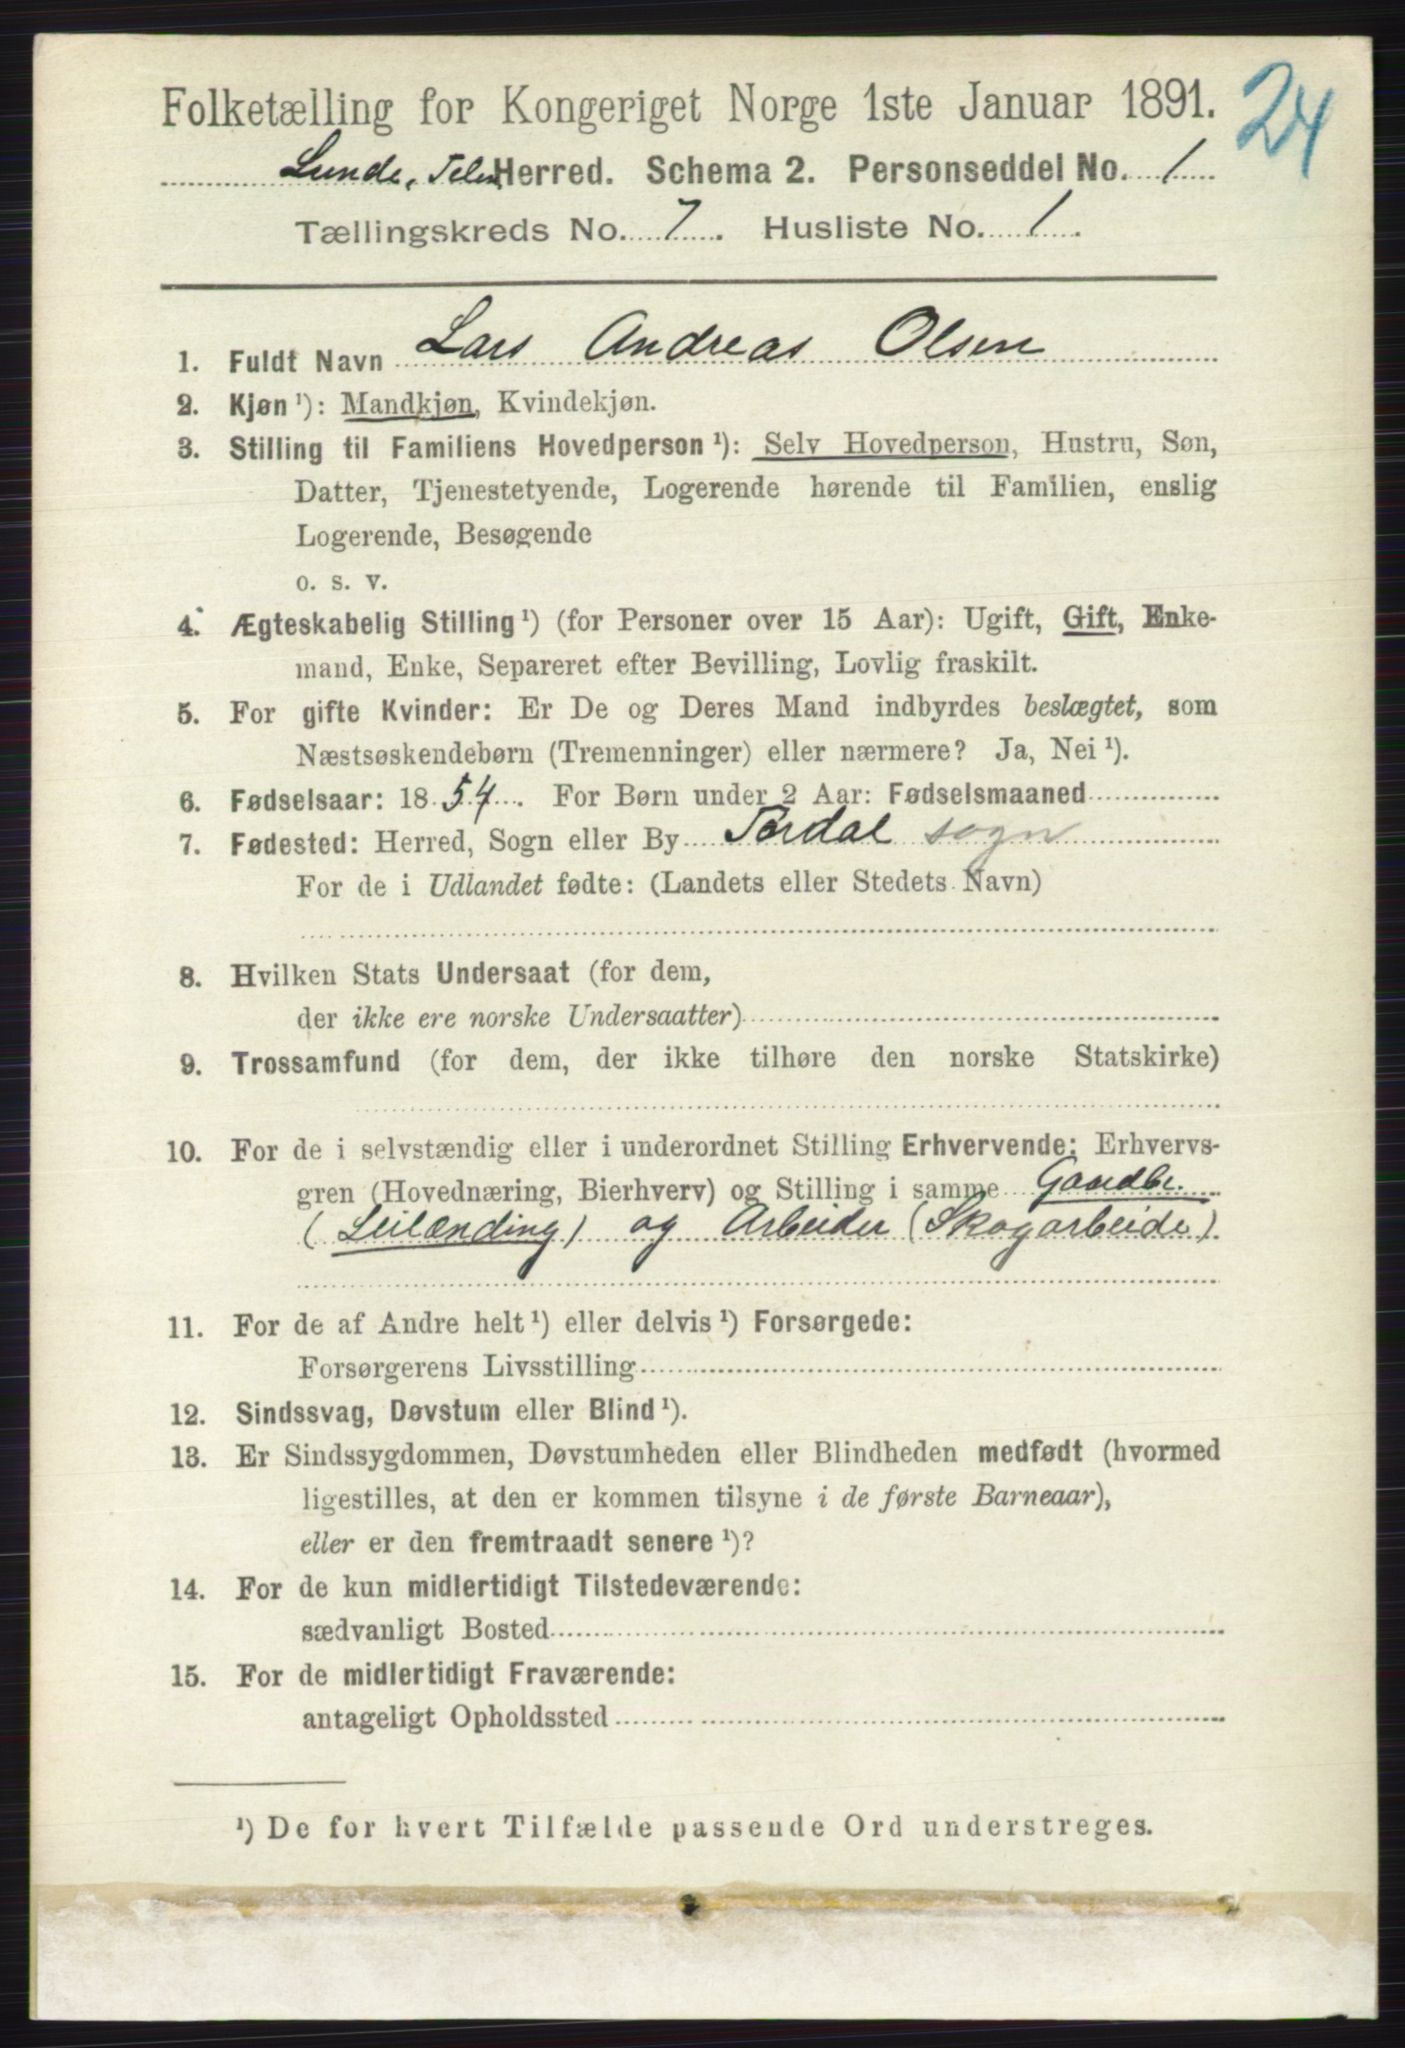 Folketælling for Kongeriget Norge 1ste Januar 1891.
24
Lunde, Telem Herred. Schema 2. Personseddel No. 1
Tællingskreds No. 7. Husliste No. 1.
1. Fuldt Navn Lars Andreas Olsen
2. Kjøn ¹): Mandkjøn, Kvindekjøn.
3. Stilling til Familiens Hovedperson ¹): Selv Hovedperson, Hustru, Søn,
Datter, Tjenestetyende, Logerende hørende til Familien, enslig
Logerende, Besøgende
o. s. v.
4. Ægteskabelig Stilling ¹) (for Personer over 15 Aar): Ugift, Gift, Enke-
mand, Enke, Separeret efter Bevilling, Lovlig fraskilt.
5. For gifte Kvinder: Er De og Deres Mand indbyrdes beslægtet, som
Næstsøskendebørn (Tremenninger) eller nærmere? Ja, Nei ¹).
6. Fødselsaar: 1854. For Børn under 2 Aar: Fødselsmaaned
7. Fødested: Herred, Sogn eller By Tørdal sogn
For de i Udlandet fødte: (Landets eller Stedets Navn)
8. Hvilken Stats Undersaat (for dem,
der ikke ere norske Undersaatter)
9. Trossamfund (for dem, der ikke tilhøre den norske Statskirke)
10. For de i selvstændig eller i underordnet Stilling Erhvervende: Erhvervs-
gren (Hovednæring, Bierhverv) og Stilling i samme Gaardbr.
(Leilænding) og Arbeider (Skogarbeide).
11. For de af Andre helt ¹) eller delvis ¹) Forsørgede:
Forsørgerens Livsstilling
12. Sindssvag, Døvstum eller Blind ¹).
13. Er Sindssygdommen, Døvstumheden eller Blindheden medfødt (hvormed
ligestilles, at den er kommen tilsyne i de første Barneaar),
eller er den fremtraadt senere ¹)?
14. For de kun midlertidigt Tilstedeværende:
sædvanligt Bosted
15. For de midlertidigt Fraværende:
antageligt Opholdssted
¹) De for hvert Tilfælde passende Ord understreges.